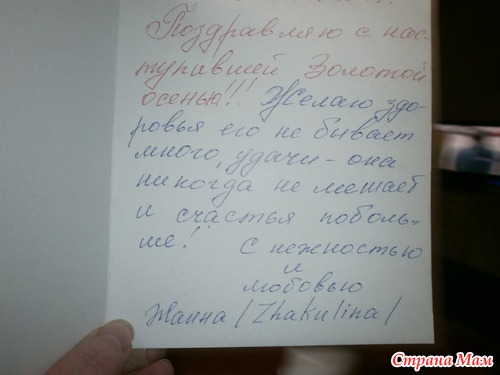 Поздравляю с нас-
тупившей Золотой
осенью!!! Желаю здо-
ровья его не бывает
много, удачи - она
никогда не мешает
и счастья поболь-
ше!
с нежностью
и
любовью
Жанна /Zhakulina/
Страна Мам